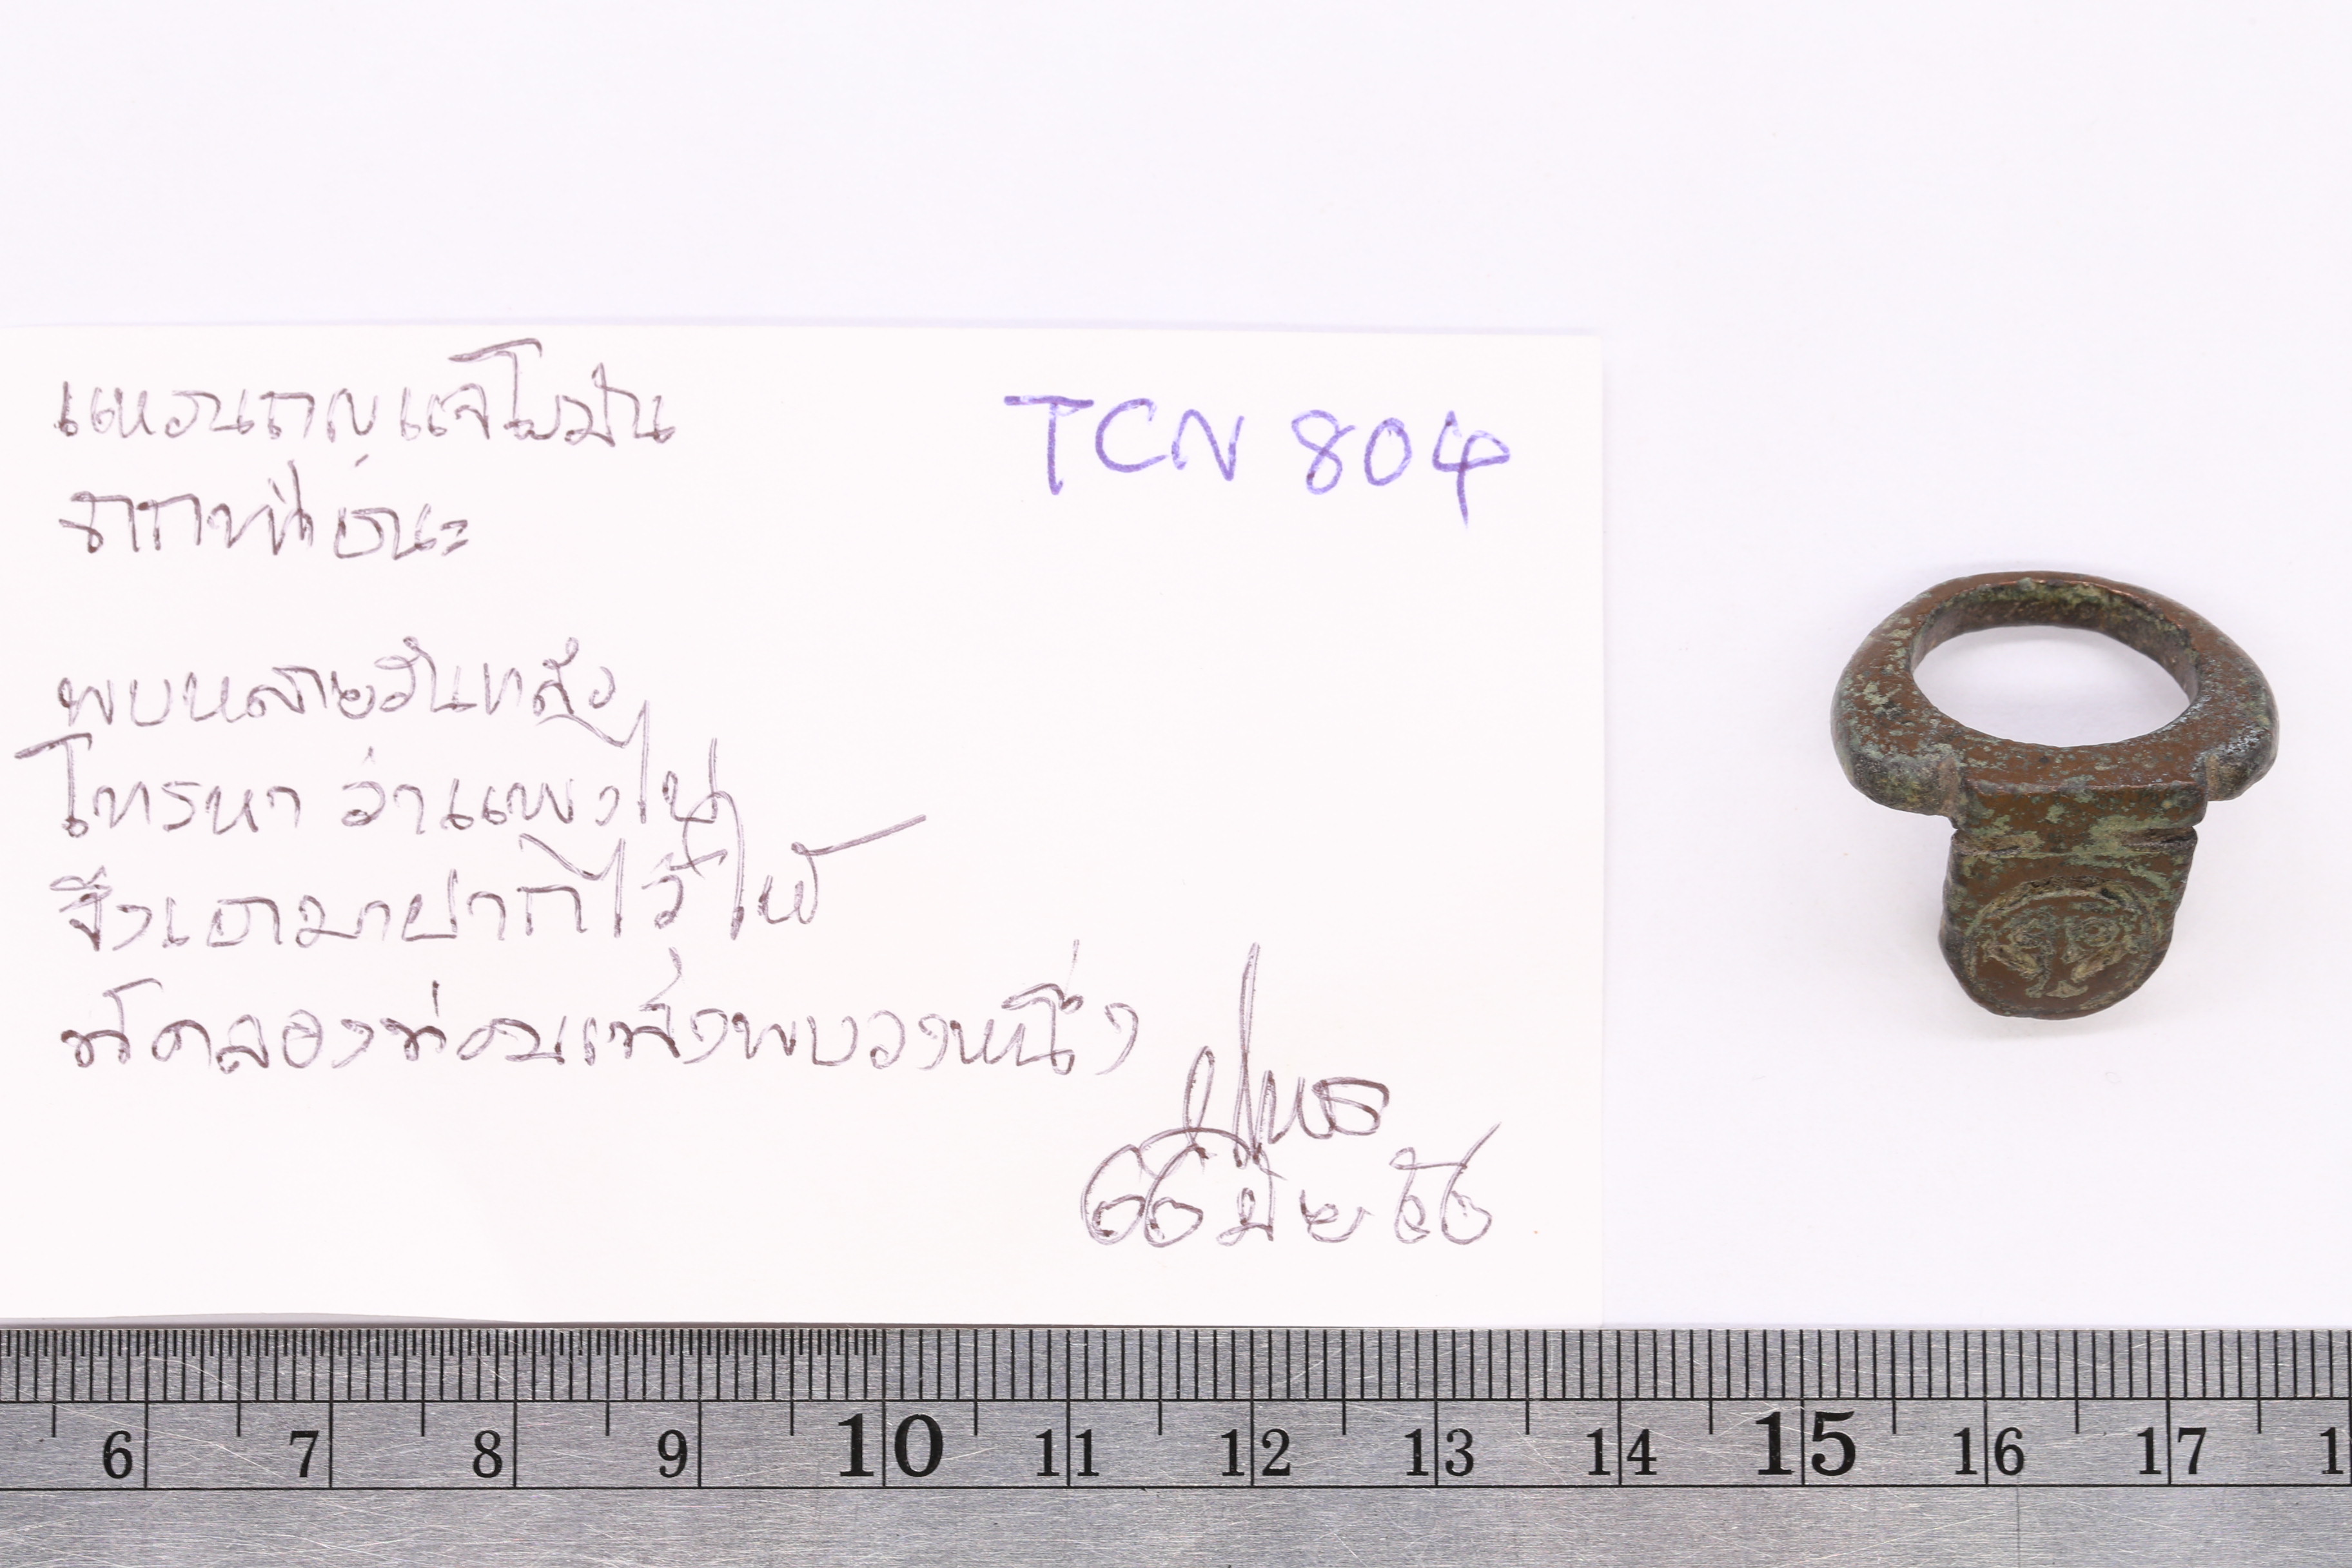 แหวนกุญแจโรมัน
TCN 804
พบหลายวันแล้ว
โทรหา ว่าแพงไป
จึงเอามาฝากไว้ให้
ที่คลองท่อมเพิ่งพบวงหนึ่ง
๑๑ มิย ๖๖
6 7 8 9 10 11 12 13 14 15 16 17 1